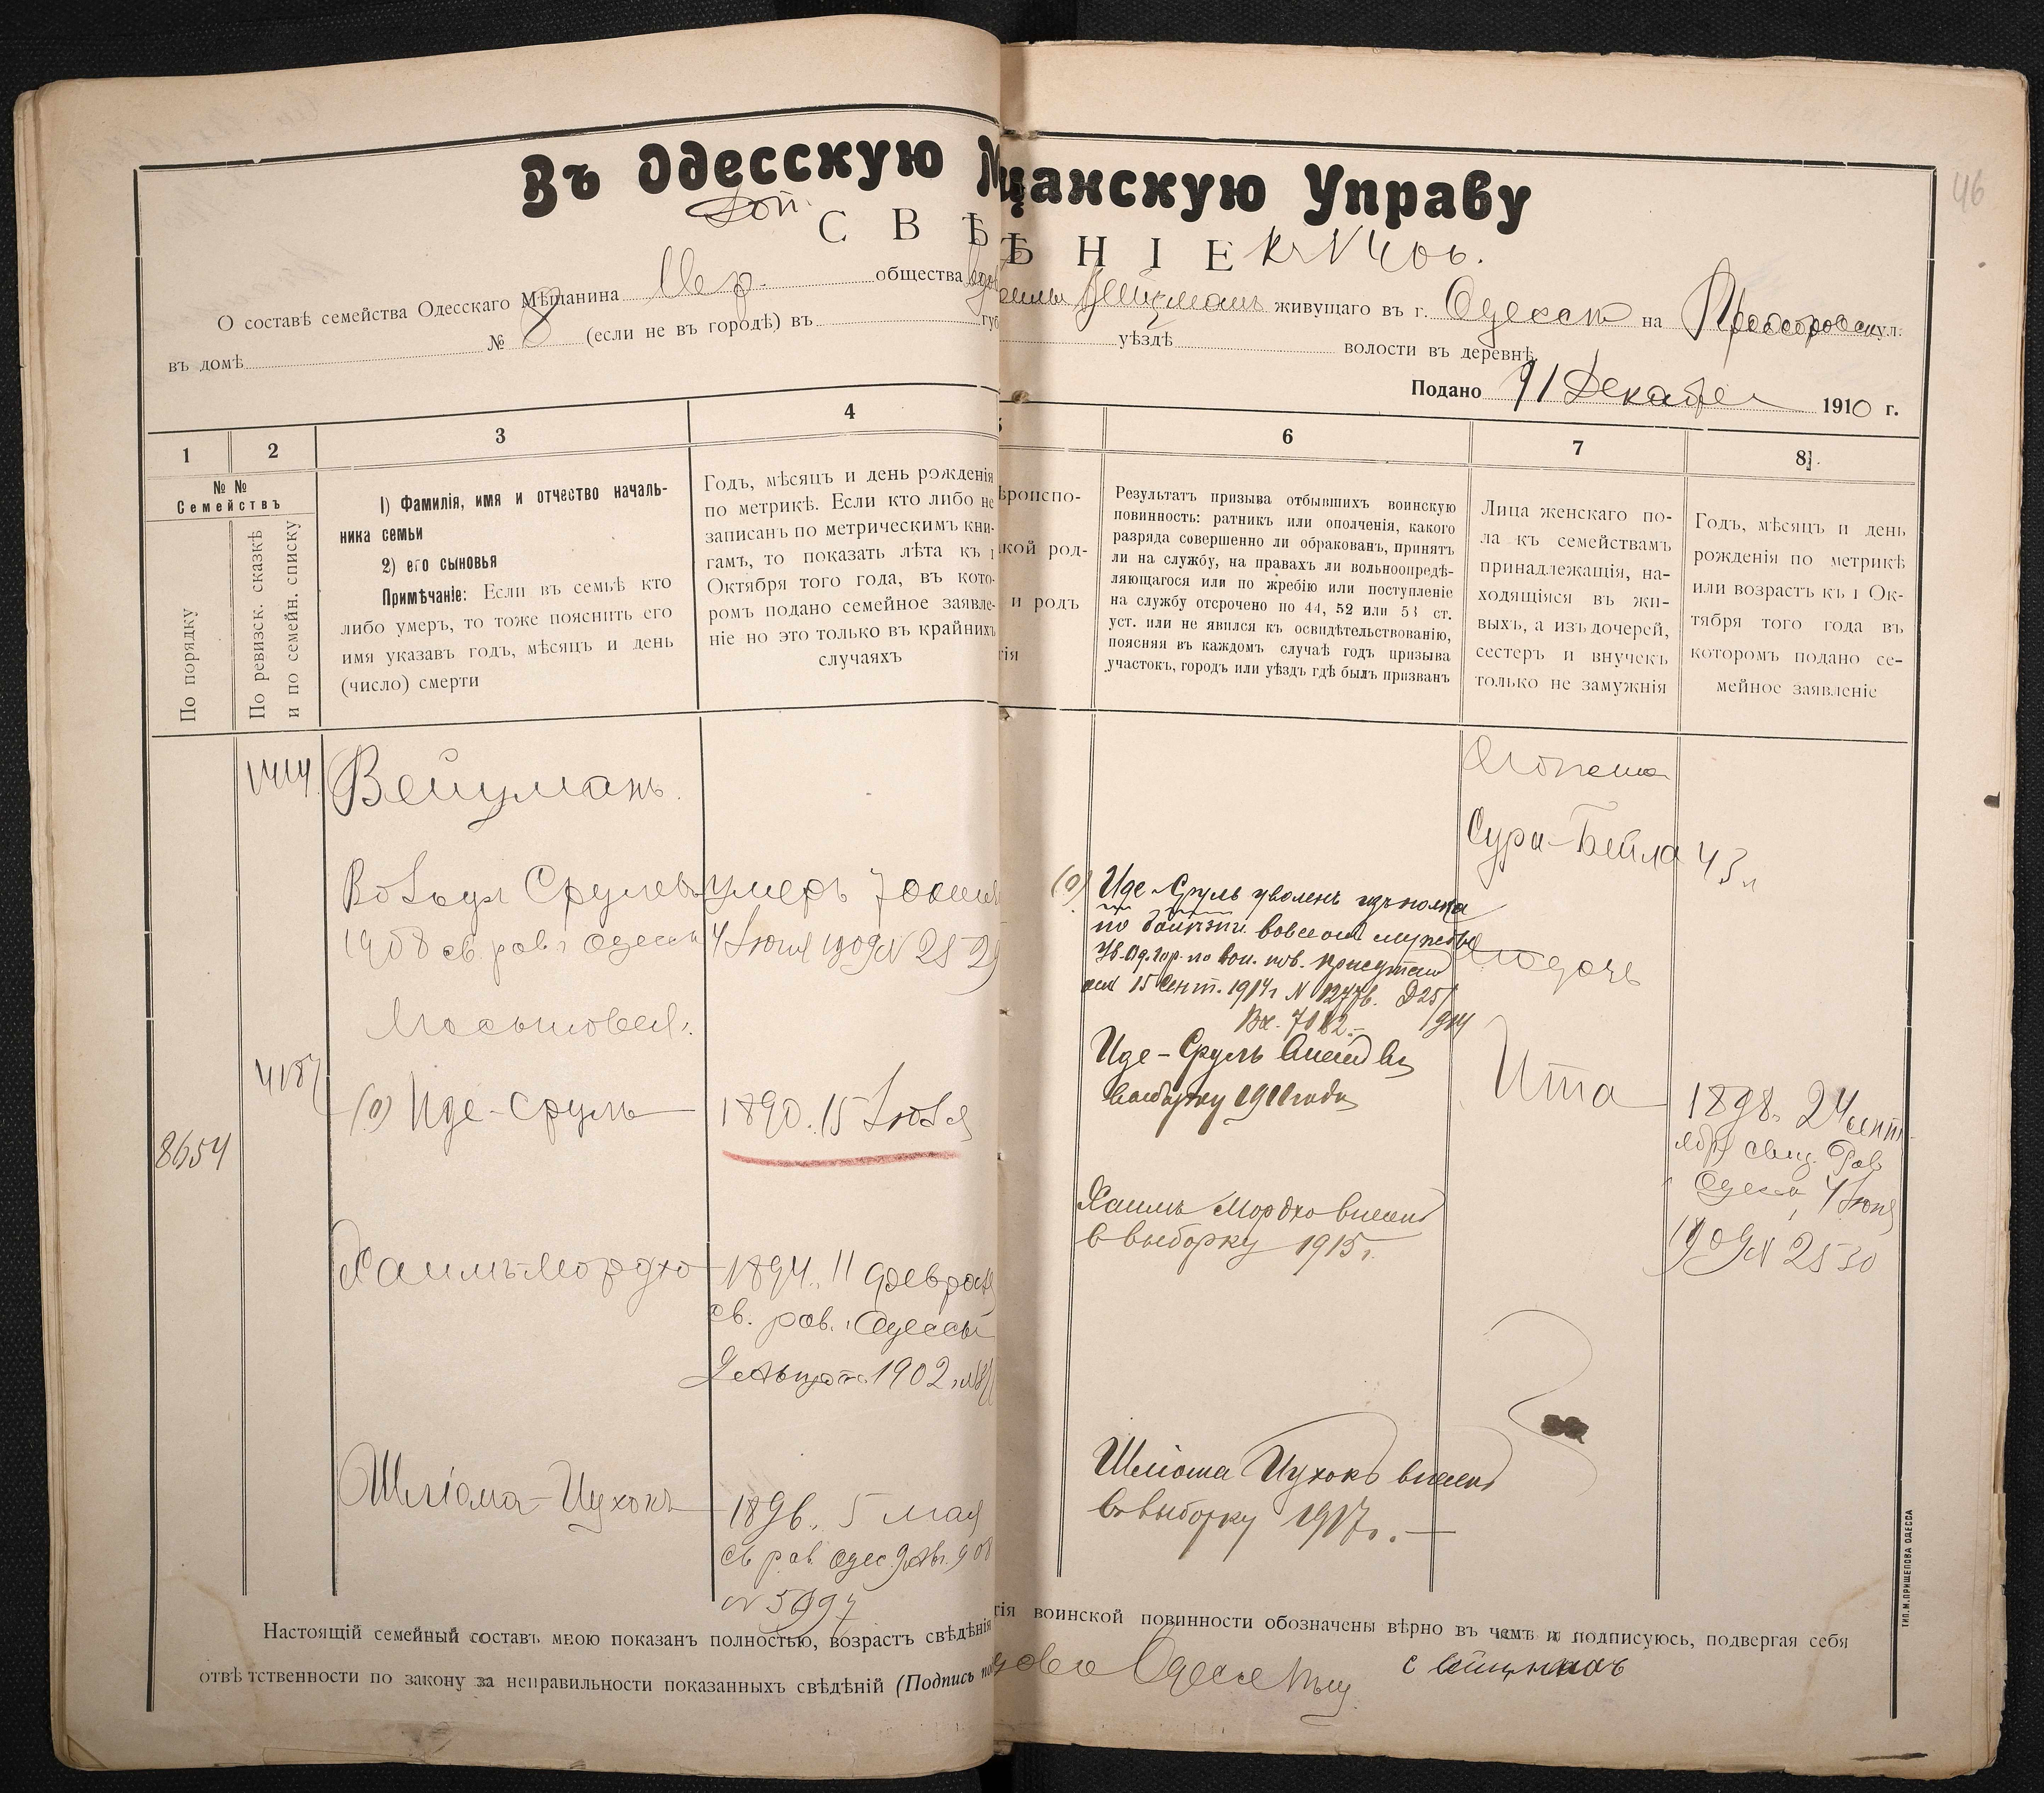 46
Въ Одесскую М щанскую Управу
Доп.
С В Ѣ Ѣ Н І Е к № 406.
О составѣ семейства Одесскаго Мѣщанина Евр. общества вдов Вейцманъ живущаго въ г. Одессѣ на ул.
въ домѣ № 8 (если не въ городѣ) въ губ уѣздѣ волости въ деревнѣ
Подано 91 Декабря 1910 г.
1 2 3 4 5 6 7 8
№ №
Семействъ
По порядку
По ревизск. сказкѣ
и по семейн. списку
1) Фамилія, имя и отчество началь-
ника семьи
2) его сыновья
Примѣчаніе: Если въ семьѣ кто
либо умеръ, то тоже пояснить его
имя указавъ годъ, мѣсяцъ и день
(число) смерти
Годъ, мѣсяцъ и день рожденія
по метрикѣ. Если кто либо не
записанъ по метрическимъ кни-
гамъ, то показать лѣта къ 1
Октября того года, въ кото-
ромъ подано семейное заявле-
ніе но это только въ крайнихъ
случаяхъ
ѣроиспо-
кой род-
и родъ
гія
Результатъ призыва отбывшихъ воинскую
повинность: ратникъ или ополченія, какого
разряда совершенно ли обракованъ, принятъ
ли на службу, на правахъ ли вольноопредѣ-
ляющагося или по жребію или поступленіе
на службу отсрочено по 44, 52 или 53 ст.
уст. или не явился къ освидѣтельствованію,
поясняя въ каждомъ случаѣ годъ призыва
участокъ, городъ или уѣздъ гдѣ былъ призванъ
Лица женскаго по-
ла къ семействамъ
принадлежащія, на-
ходящіяся въ жи-
выхъ, а изъ дочерей,
сестеръ и внучекъ
только не замужнія
Годъ, мѣсяцъ и день
рожденія по метрикѣ
или возрастъ къ 1 Ок-
тября того года въ
которомъ подано се-
мейное заявленіе
1414 Вейцманъ.
Срулевъ умеръ 7
1908 св. рав. Одессы 4 Іюня 1909 № 2529
Сыновья:
4187
(0) Иде-Сруль 1890. 15 Іюля
8654
Хаимъ-Мордхо 1894. 11 Февраля
св. рав. Одессы
1902
Шліома-Ицхокъ 1896. 5 Мая
св. рав. Одес. 9 Ав. 908
№ 5997
(0) Иде-Сруль уволенъ изъ полка
по болѣзни вовсе от службы
Ув. Од. гор. по воин. пов. присутств
от 15 Сент. 1914 г № Д25/
Вх. 7082.- 1914
Иде-Сруль внесенъ въ
выборку 1911 года
Хаимъ Мордхо внесенъ
в выборку 1915 г.
Шліома Ицхокъ внесенъ
въ выборку 1917 г.
Его жена
Сура-Бейла 43 л
Его дочь
Ита
1898. 24 сент
ября свид. Рав
Одессы, 4 Іюня
1909 № 2530
Настоящій семейный составъ мною показанъ полностью, возрастъ свѣдѣнія гія воинской повинности обозначены вѣрно въ чемъ и подписуюсь, подвергая себя
отвѣтственности по закону за неправильности показанныхъ свѣдѣній (Подпись по
ТИП. М. ПРИЩЕПОВА ОДЕССА